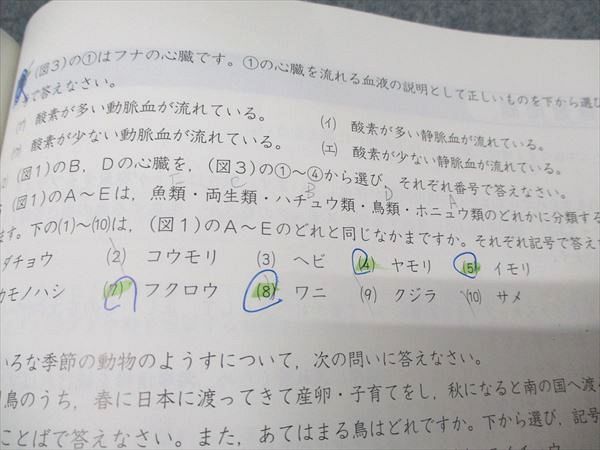 (図3)の①はフナの心臓です。①の心臓を流れる血液の説明として正しいものを下から選び
で答えなさい。
酸素が多い動脈血が流れている。 (イ) 酸素が多い静脈血が流れている。
酸素が少ない動脈血が流れている。 (エ) 酸素が少ない静脈血が流れている。
(図1)のB，Dの心臓を，(図3)の①～④から選び，それぞれ番号で答えなさい。
E C B D A
(図1)のA～Eは，魚類・両生類・ハチュウ類・鳥類・ホニュウ類のどれかに分類する
ます。下の(1)～(10)は，(図1)のA～Eのどれと同じなかまですか。それぞれ記号で答え
ダチョウ (2) コウモリ (3) ヘビ (4) ヤモリ (5) イモリ
カモノハシ (7) フクロウ (8) ワニ (9) クジラ (10) サメ
いろな季節の動物のようすについて，次の問いに答えなさい。
鳥のうち，春に日本に渡ってきて産卵・子育てをし，秋になると南の国へ渡
ことばで答えなさい。また，あてはまる鳥はどれですか。下から選び，記号